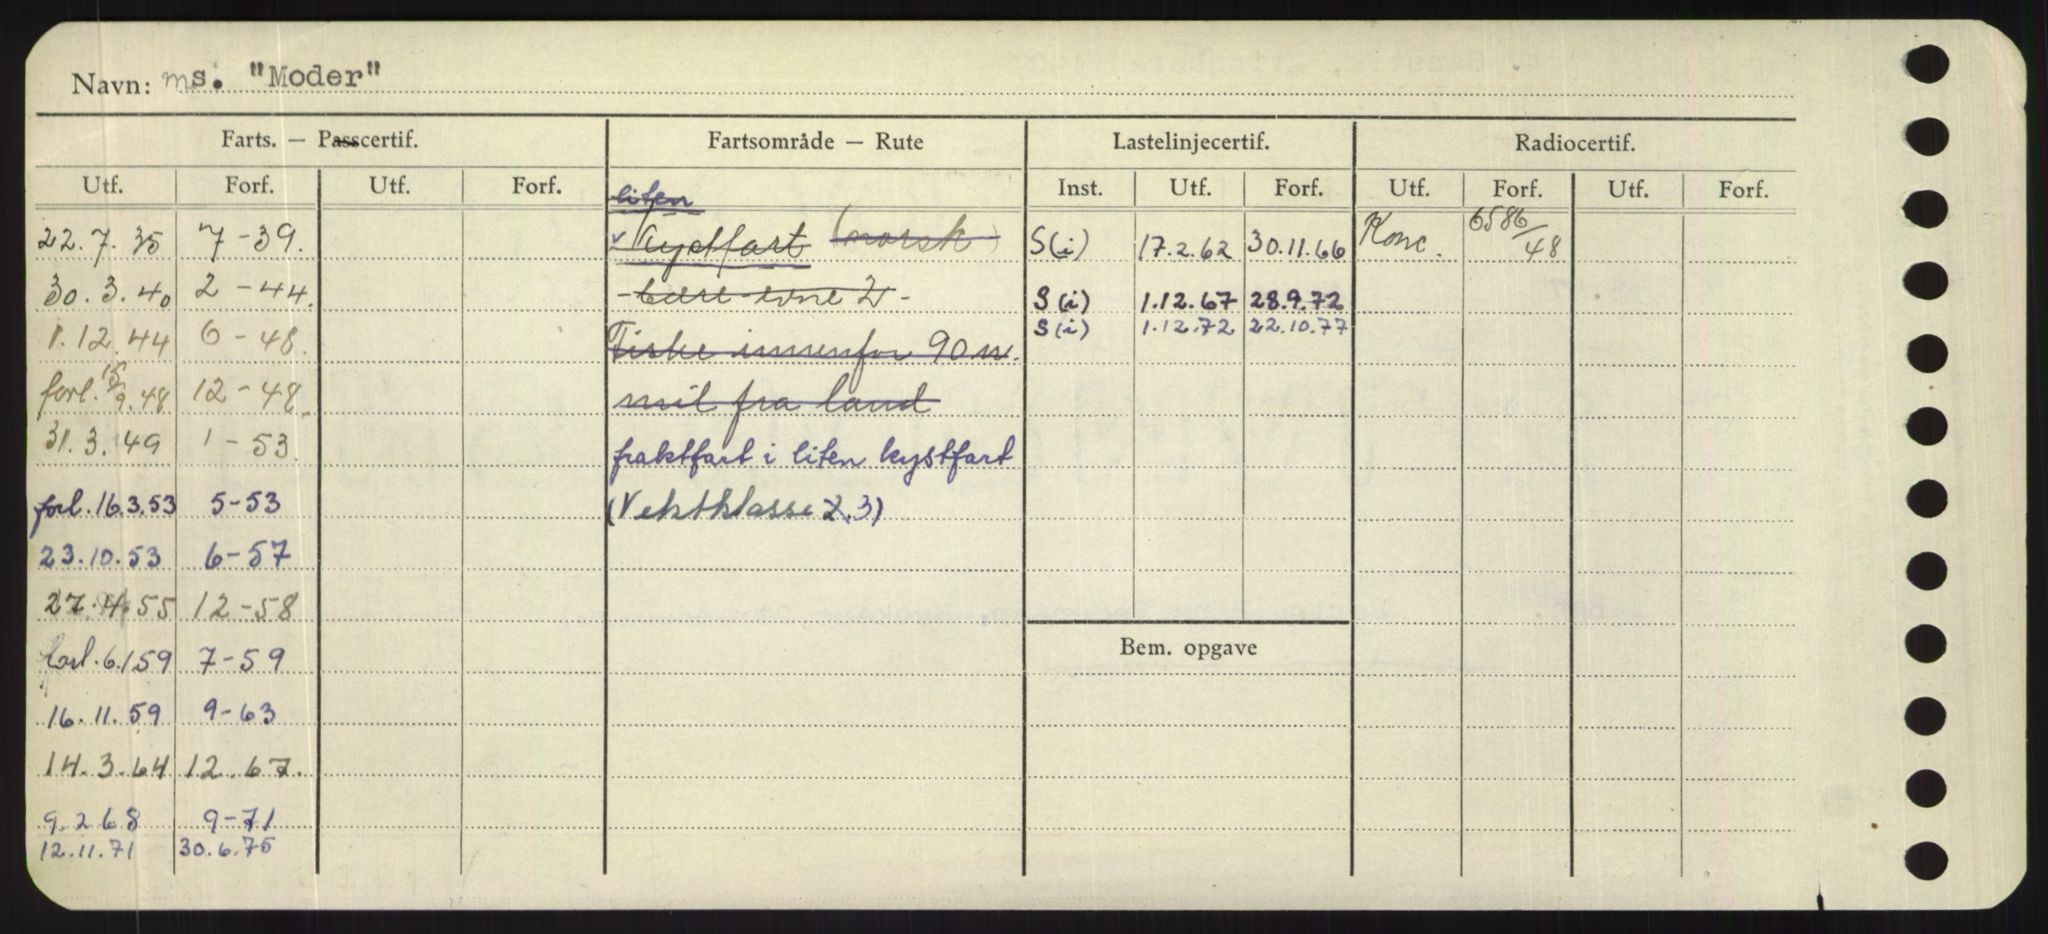 Navn: ms. "Moder"
Farts. — Passcertif. Fartsområde — Rute Lastelinjecertif. Radiocertif.
Utf. Forf. Utf. Forf. Inst. Utf. Forf. Utf. Forf. Utf. Forf.
liten
22.7.35 7-39. Kystfart (norsk) S(i) 17.2.62 30.11.66 Konc. 6586/48
30.3.40 2-44. S(i) 1.12.67 28.9.72
S(i) 1.12.72 22.10.77
1.12.44 6-48. Fiske innenfor 90 n.
forl. 15/9.48 12-48. mil fra land
31.3.49 1-53. fraktfart i liten kystfart
forl. 16.3.53 5-53 (Vektklasse 2.3)
23.10.53 6-57
27.4.55 12-58
forl. 6.1.59 7-59
Bem. opgave
16.11.59 9-63
14.3.64 12.67.
9.2.68 9-71
12.11.71 30.6.75